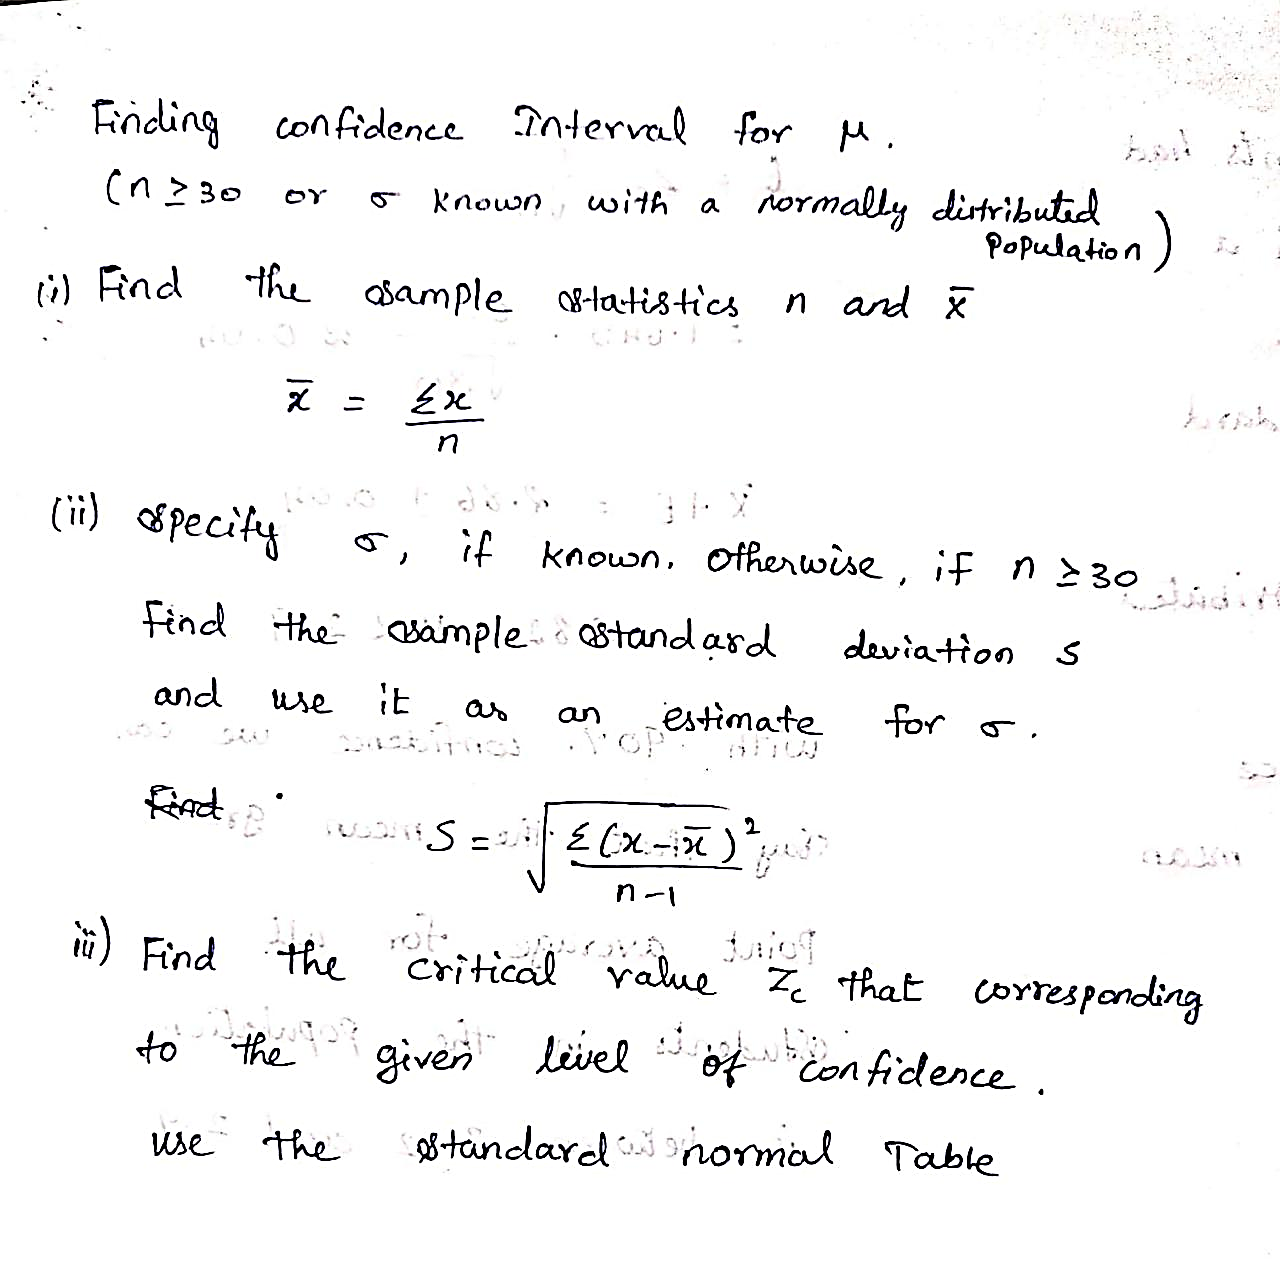 Finding confidence Interval for μ.
(n ≥ 30 or σ known, with a normally distributed
Population)
(i) Find the sample statistics n and x̄
x̄ = Σx
n
(ii) specify σ, if known. Otherwise, if n ≥ 30
find the sample standard deviation s
and use it as an estimate for σ.
Find
S = √ Σ(x-x̄)²
n-1
iii) Find the critical value Zc that corresponding
to the given level of confidence.
use the standard normal Table